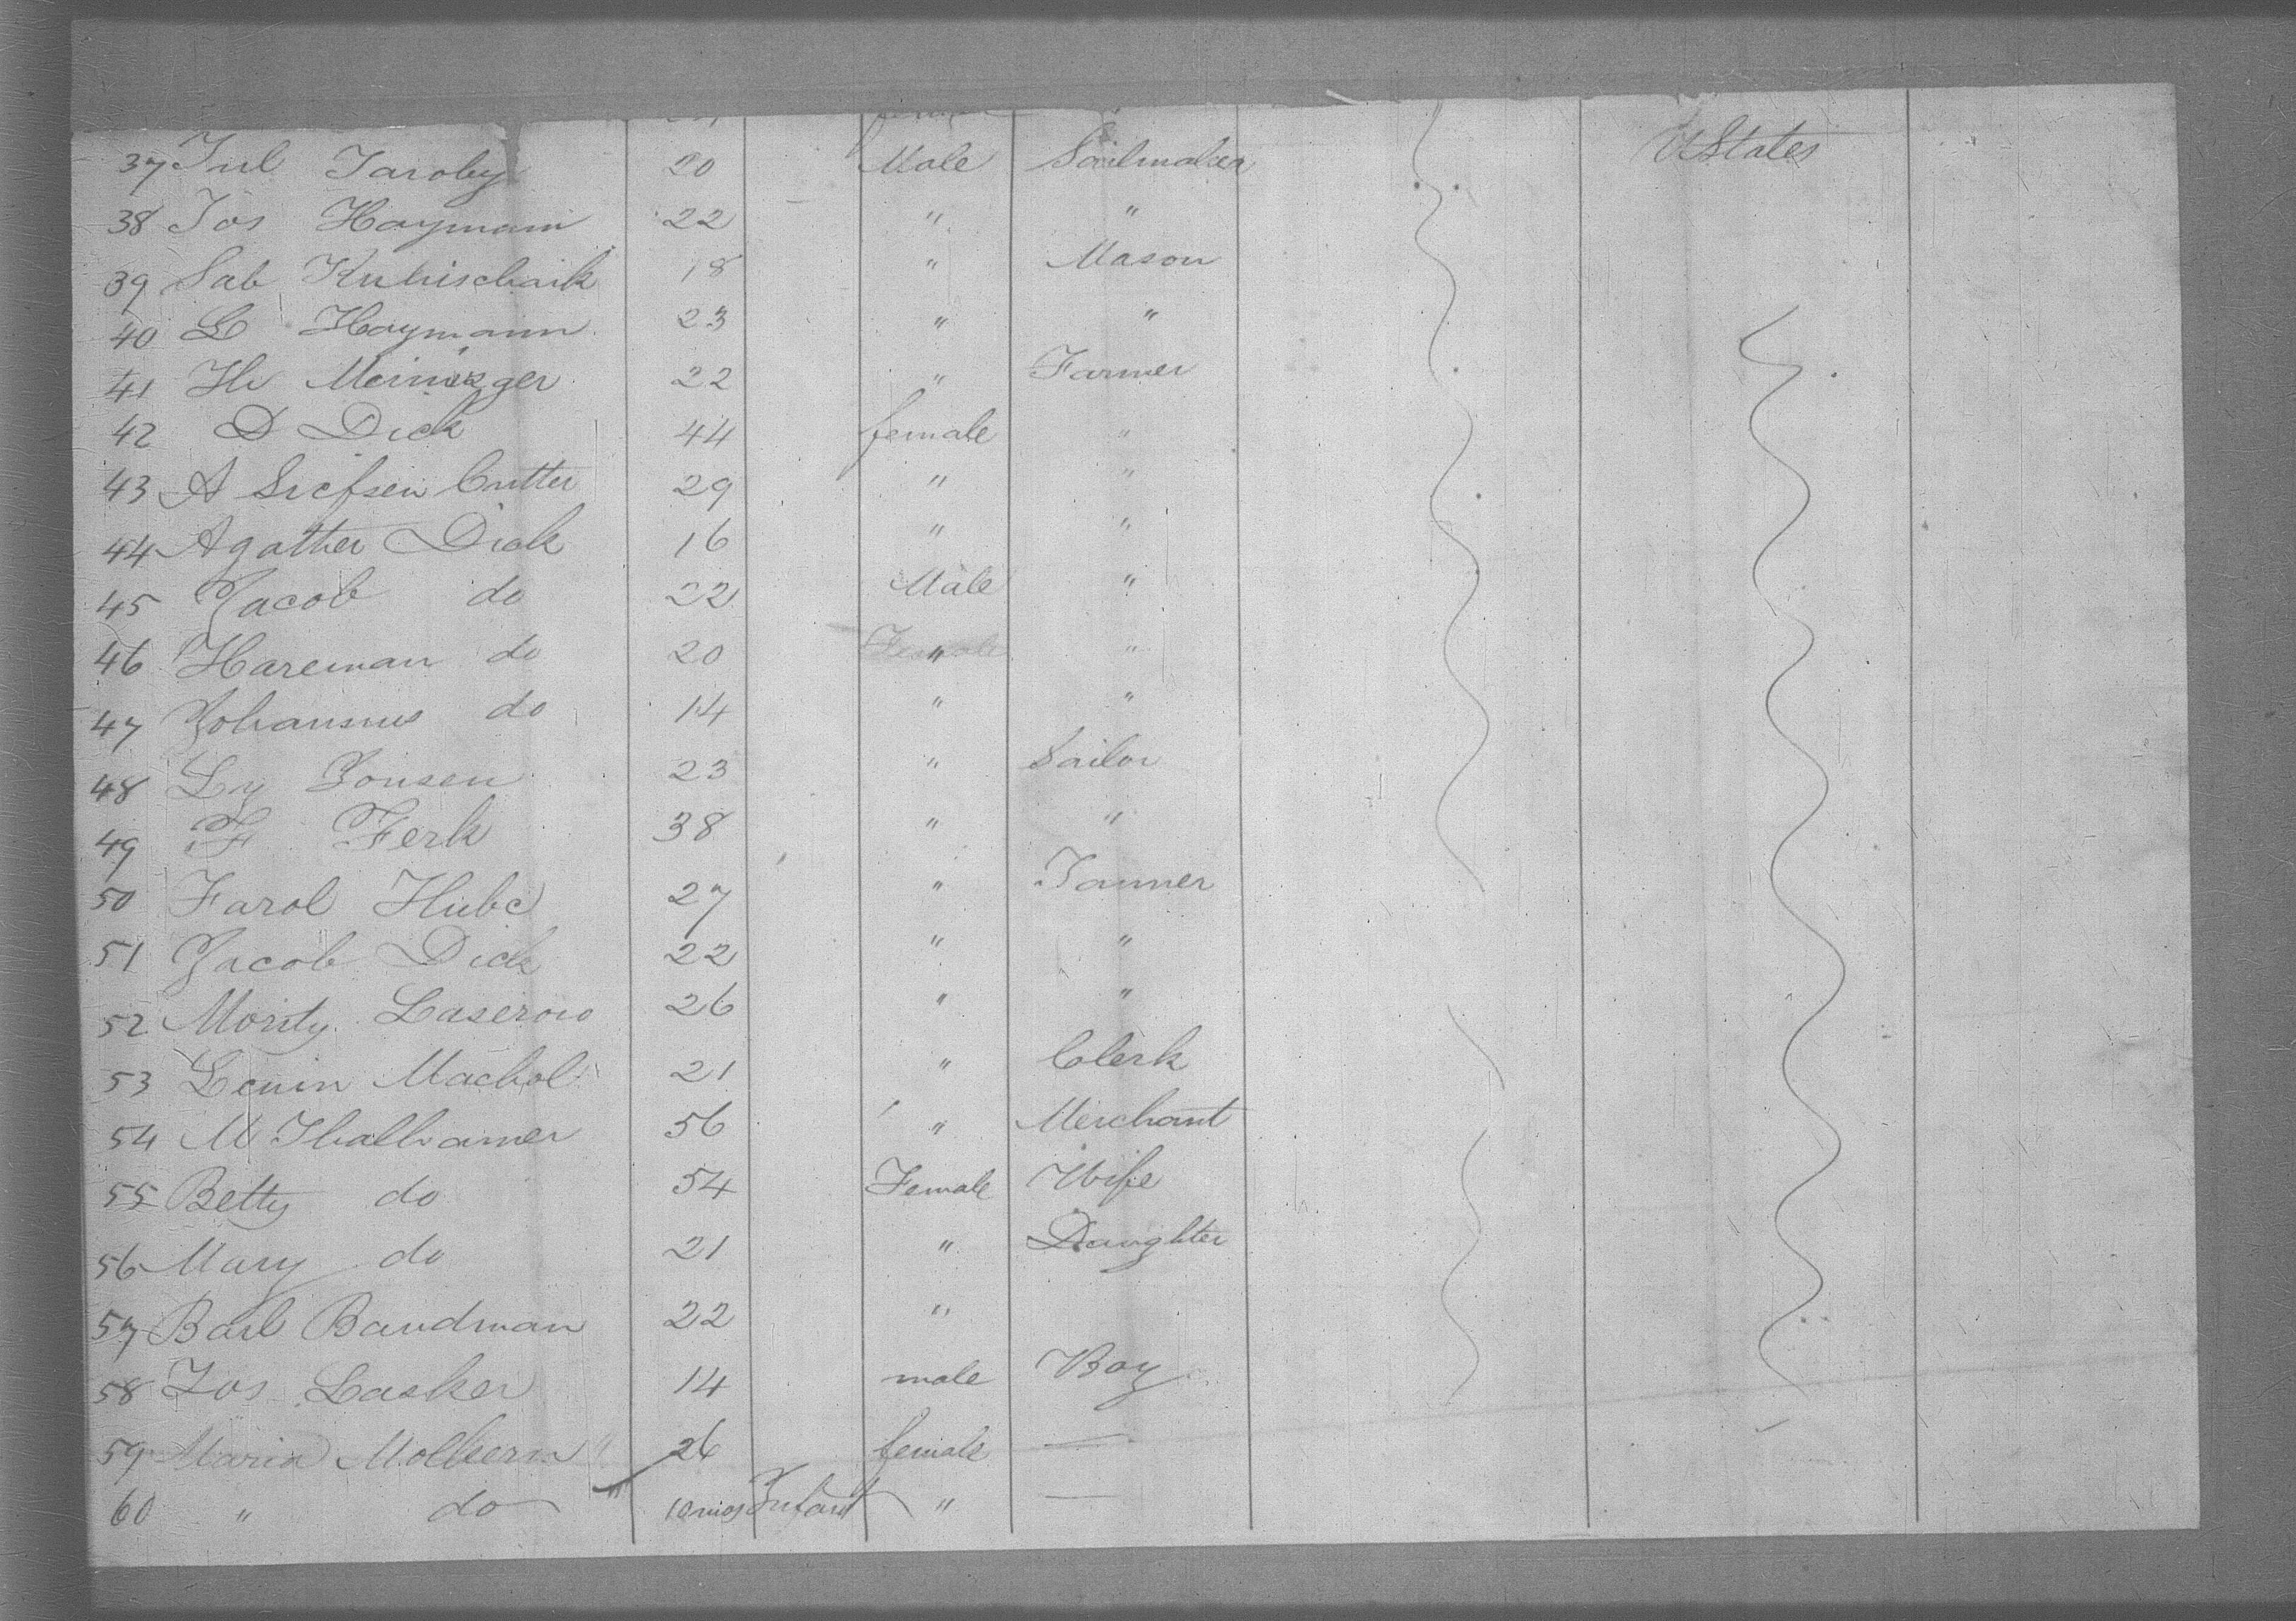 37 Jul Jaroby 20 Male Sailmaker U States
38 Jos Haymann 22 " "
39 Sab Kutischaik 18 " Mason
40 L Haymann 23 " "
41 Hr Meininger 22 " Farmer
42 D Dick 44 female "
43 A Siefsen Cutter 29 " "
44 Agather Dick 16 " "
45 Jacob do 22 Male "
46 Hareman do 20 " "
47 Johannus do 14 " "
48 Ly Jonsen 23 " Sailor
49 F Ferk 38 " "
50 Farol Hube 27 " Tanner
51 Jacob Dick 22 " "
52 Monty Laserow 26 " "
53 Lewin Machol 21 " Clerk
54 M Thalhamer 56 " Merchant
55 Betty do 54 Female Wife
56 Mary do 21 " Daughter
57 Barl Bandman 22 "
58 Jos Lasker 14 male Boy
59 Maria Molkern " 26 female —
60 " do " 10 mos Infant " —